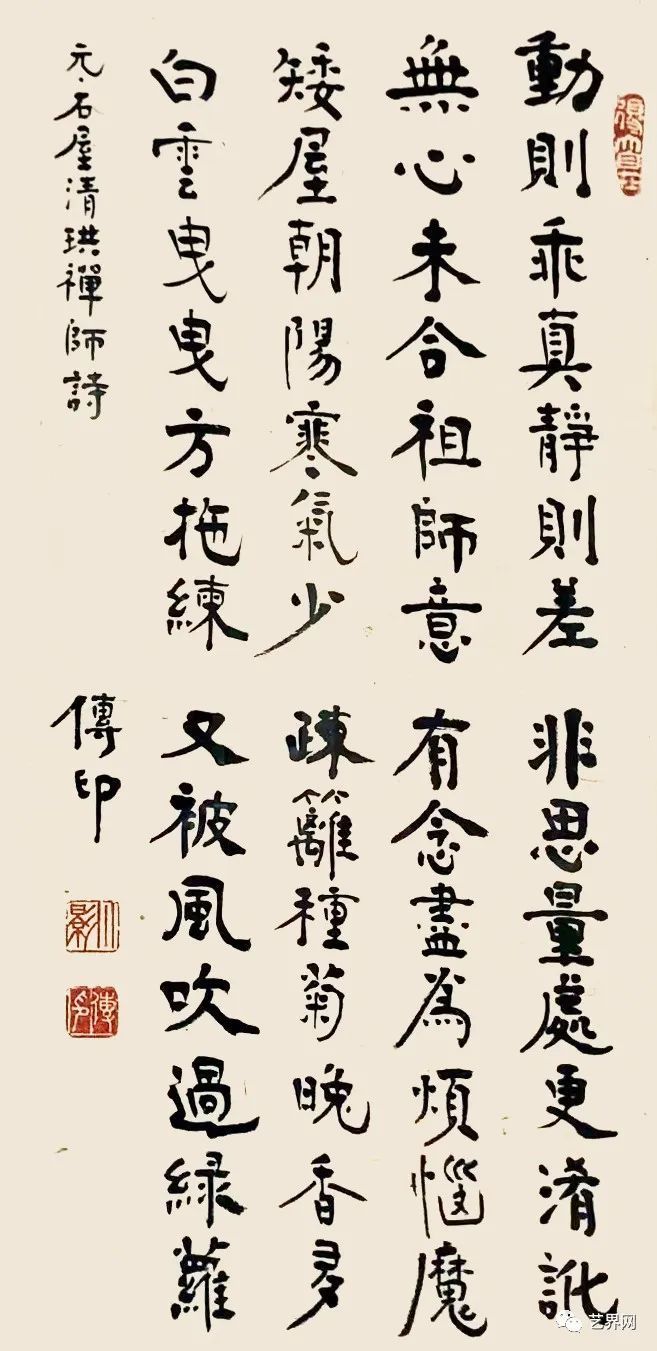 動則乖真靜則差 非思量處更淆訛
無心未合祖師意 有念盡為煩惱魔
矮屋朝陽寒氣少 疎籬種菊晚香多
白雲曳曳方拖練 又被風吹過綠蘿
元·石屋清珙禪師詩 傳印
傳印
艺界网